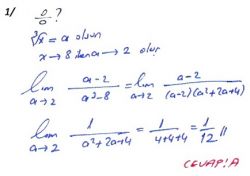 1/ 0/0 ?
∛x = a olsun
x → 8 iken a → 2 olur
lim a→2 (a-2)/(a³-8) = lim a→2 (a-2)/((a-2)(a²+2a+4))
lim a→2 1/(a²+2a+4) = 1/(4+4+4) = 1/12 //
CEVAP: A